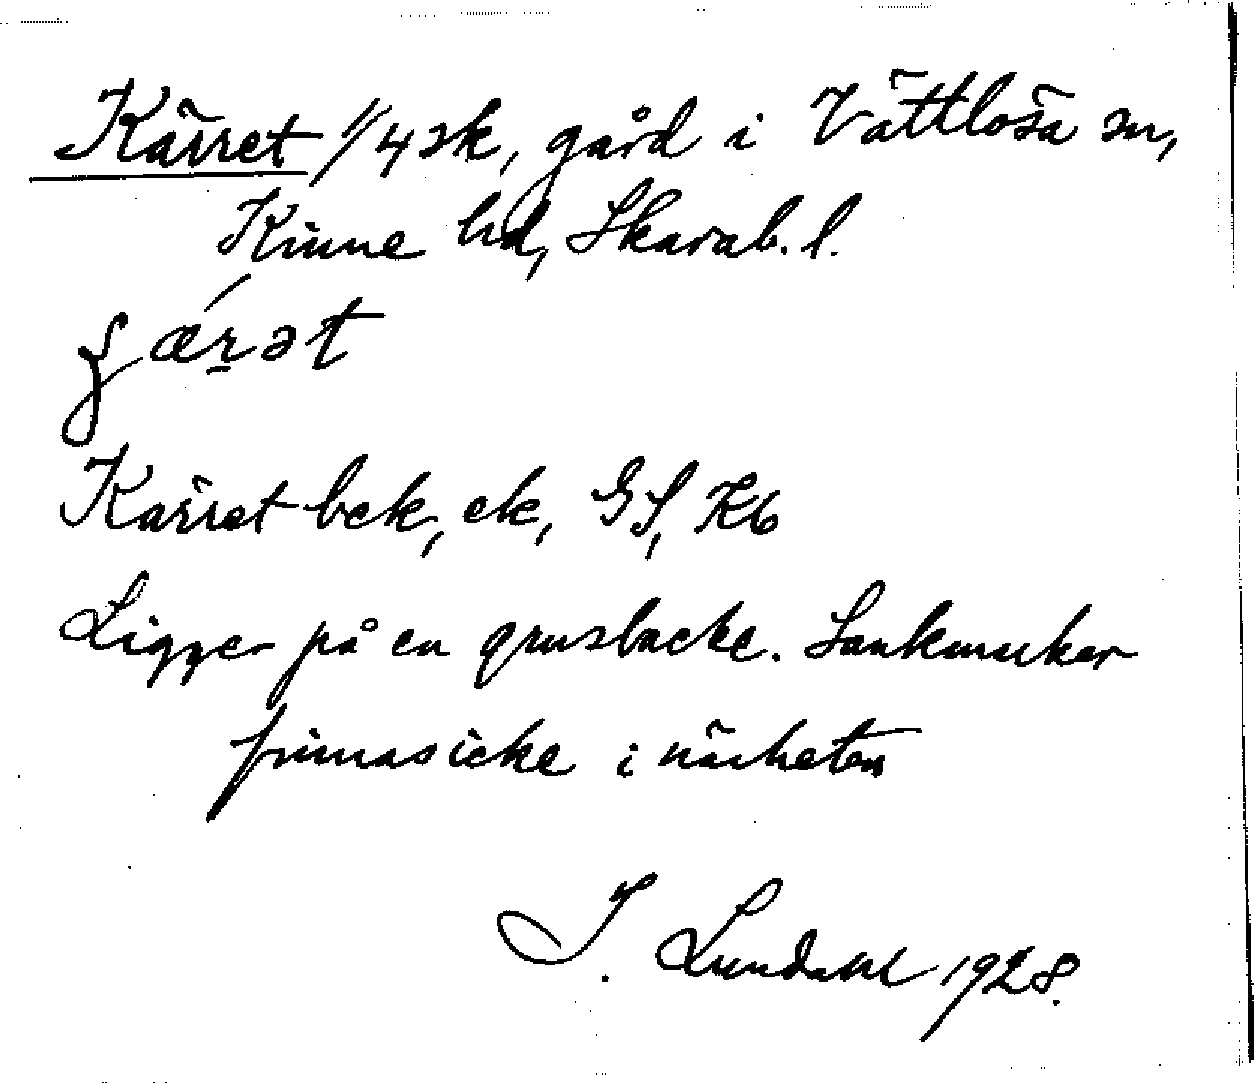 Kärret 1/4 sk, gård i Vättlösa sn,
Kinne hd, Skarab. l.
ʃæ̀r̲ət
Kärret bek, ek, GS, Kb
Ligger på en grusbacke. Sankmarker
finnas icke i närheten
I. Lundahl 1928.